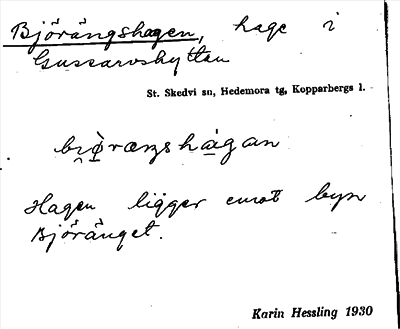 Björängshagen, hage i
Gussarvshyttan
St. Skedvi sn, Hedemora tg, Kopparbergs l.
Hagen ligger emot byn
Björänget.
Karin Hessling 1930